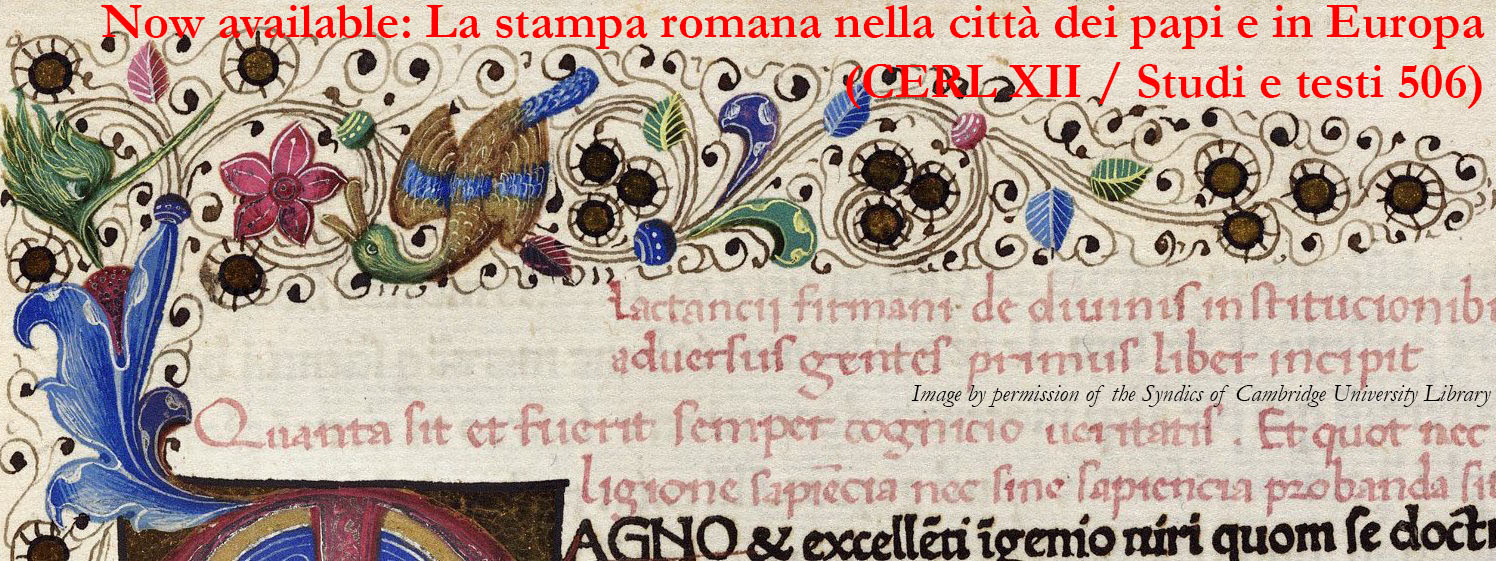 Now available: La stampa romana nella città dei papi e in Europa
(CERL XII / Studi e testi 506)
Lactancij firmani de diuinis institucionibu
aduersus gentes primus liber incipit
Image by permission of the Syndics of Cambridge University Library
Quanta sit et fuerit semper cognicio ueritatis. Et quot nec
ligione sapiēcia nec sine sapiencia probanda sit
AGNO & excellēti īgenio uiri quom se doctr